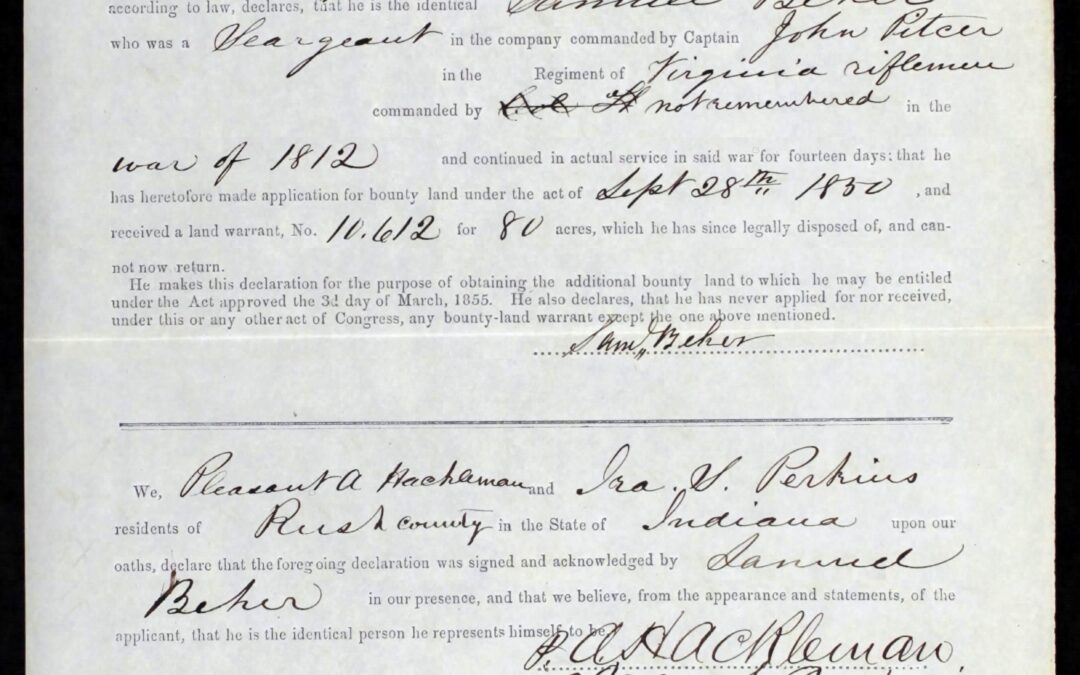 according to law, declares, that he is the identical Samuel Beher
who was a Seargeant in the company commanded by Captain John Pitcer
in the Regiment of Virginia riflemen
commanded by not remembered in the
war of 1812 and continued in actual service in said war for fourteen days: that he
has heretofore made application for bounty land under the act of Sept 28th 1850, and
received a land warrant, No. 10.612 for 80 acres, which he has since legally disposed of, and can-
not now return.
He makes this declaration for the purpose of obtaining the additional bounty land to which he may be entitled
under the Act approved the 3d day of March, 1855. He also declares, that he has never applied for nor received,
under this or any other act of Congress, any bounty-land warrant except the one above mentioned.
Saml Beher
We, Pleasant A Hackleman and Ira. S. Perkins
residents of Rush county in the State of Indiana upon our
oaths, declare that the foregoing declaration was signed and acknowledged by Samuel
Beher in our presence, and that we believe, from the appearance and statements, of the
applicant, that he is the identical person he represents himself to be.
P. A. Hackleman.